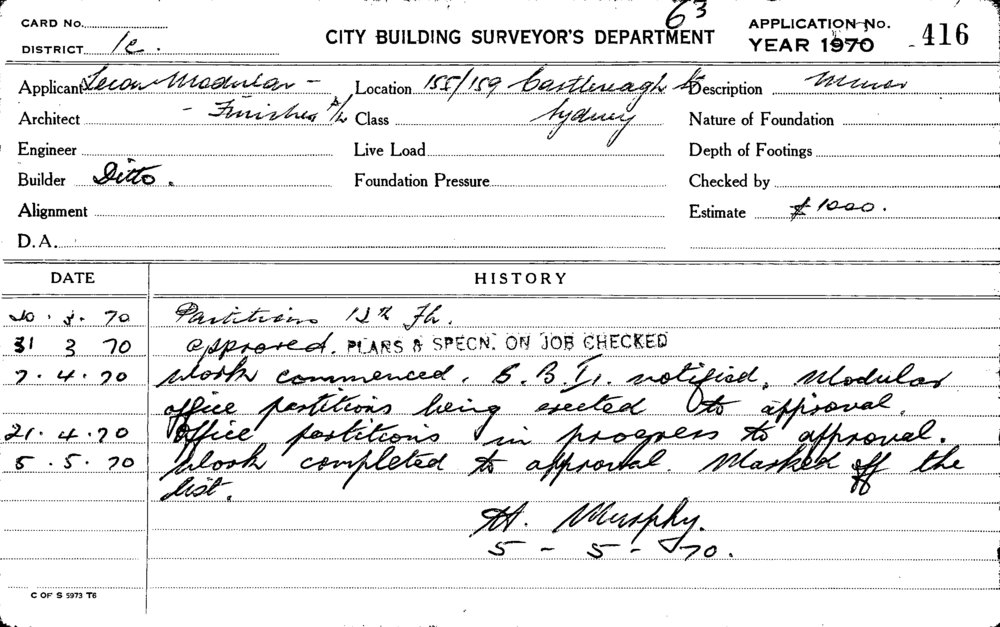 63
CARD No.
DISTRICT 1c.
CITY BUILDING SURVEYOR'S DEPARTMENT
APPLICATION No.
YEAR 1970 416
Applicant Modular - Location 155/159 Castlereagh St Description Minor
Architect - Finishes P/L Class Sydney Nature of Foundation
Engineer Live Load Depth of Footings
Builder Ditto. Foundation Pressure Checked by
Alignment Estimate $1000.
D.A.
DATE HISTORY
20.3.70 Partitions 12th Fl.
31 3 70 approved. PLANS & SPECN. ON JOB CHECKED
7.4.70 Work commenced. notified. Modular
office partitions being erected to approval.
21.4.70 Office partitions in progress to approval.
5.5.70 Work completed to approval. Marked off the
list.
H. Murphy.
5-5-70.
C OF S 5973 T6